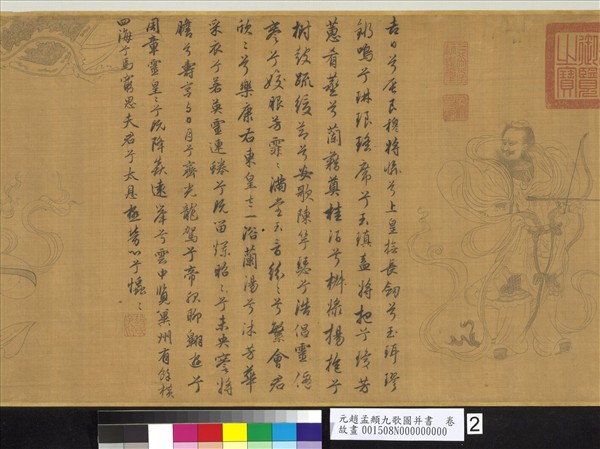 御覽之寶
吉日兮辰良穆將愉兮上皇撫長劍兮玉珥璆
鏘鳴兮琳琅瑤席兮玉瑱盍將把兮瓊芳
蕙肴蒸兮蘭藉奠桂酒兮椒漿揚枹兮
拊鼓疏緩節兮安歌陳竽瑟兮浩倡靈偃
蹇兮姣服芳霏〻滿堂五音紛〻兮繁會君
欣〻兮樂康右東皇太一浴蘭湯兮沐芳華
采衣兮若英靈連蜷兮既留爛昭〻兮未央蹇將
憺兮壽宮與日月兮齊光龍駕兮帝服聊翱遊兮
周章靈皇〻兮既降猋遠舉兮雲中覽冀州有餘橫
四海兮焉窮思夫君兮太息極勞心兮𢥞〻
元趙孟頫九歌圖并書 卷
故畫001508N000000000
2